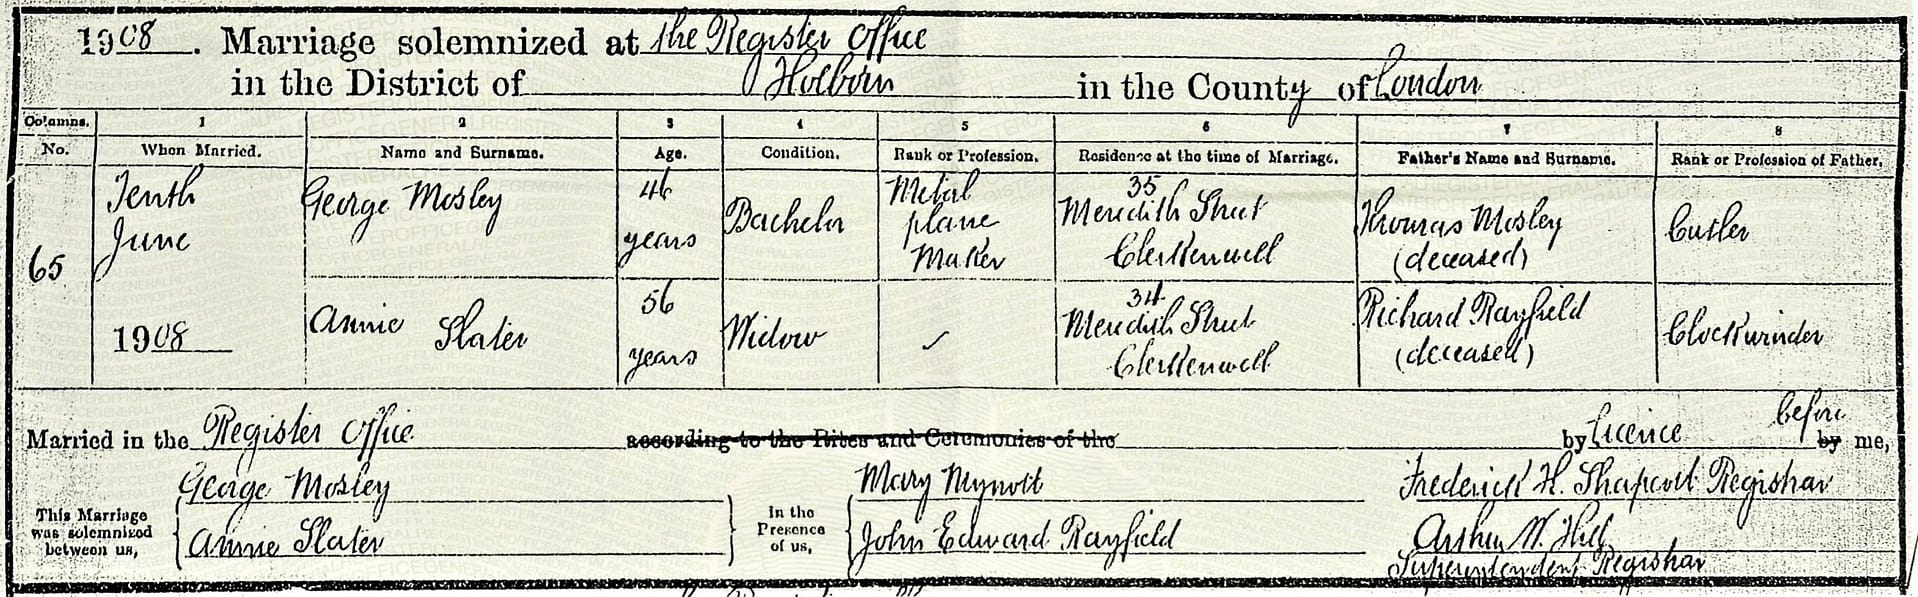 1908. Marriage solemnized at the Register Office
in the District of Holborn in the County of London
Columns. 1 2 3 4 5 6 7 8
No. When Married. Name and Surname. Age. Condition. Rank or Profession. Residence at the time of Marriage. Father's Name and Surname. Rank or Profession of Father.
65
Tenth
June
1908
George Mosley
46
years
Bachelor
Metal
plane
Maker
35
Meredith Street
Clerkenwell
Thomas Mosley
(deceased)
Cutler
Annie Slater
56
years
Widow
34
Meredith Street
Clerkenwell
Richard Rayfield
(deceased)
Clockwinder
Married in the Register Office according to the Rites and Ceremonies of the by Licence before by me,
This Marriage
was solemnized
between us,
George Mosley
Annie Slater
In the
Presence
of us,
Mary Mynott
John Edward Rayfield
Frederick H. Shapcott Registrar
Arthur W. Hill
Superintendent Registrar